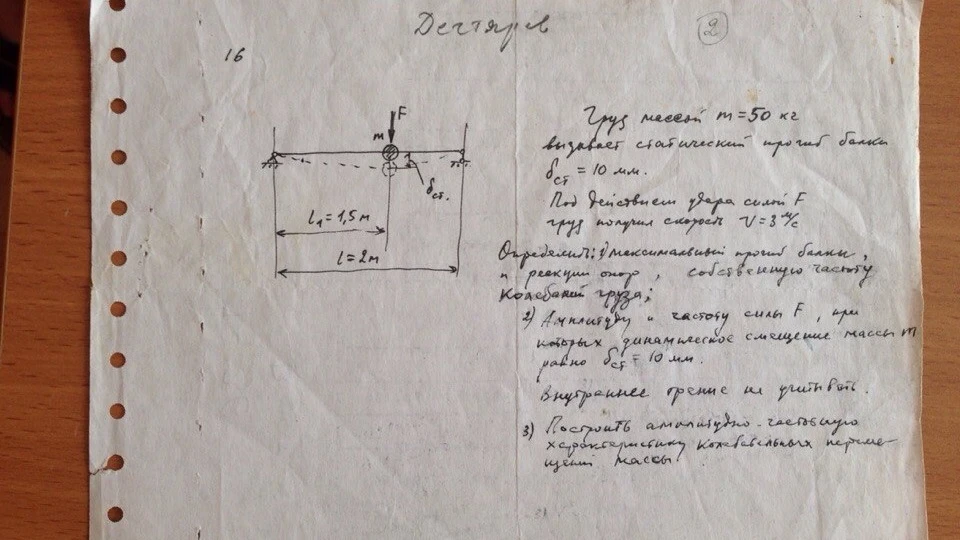 Дегтярев
2
16
F
m
δст.
l₁=1,5 м
l=2м
Груз массой m=50 кг
вызывает статический прогиб балки
δст = 10 мм.
Под действием удара силой F
груз получил скорость V=3 м/с
Определить: 1) максимальный прогиб балки,
и реакции опор, собственную частоту
колебаний груза;
2) Амплитуду и частоту силы F, при
которых динамическое смещение массы m
равно δст = 10 мм.
Внутреннее трение не учитывать.
3) Построить амплитудно-частотную
характеристику колебательных переме-
щений массы.